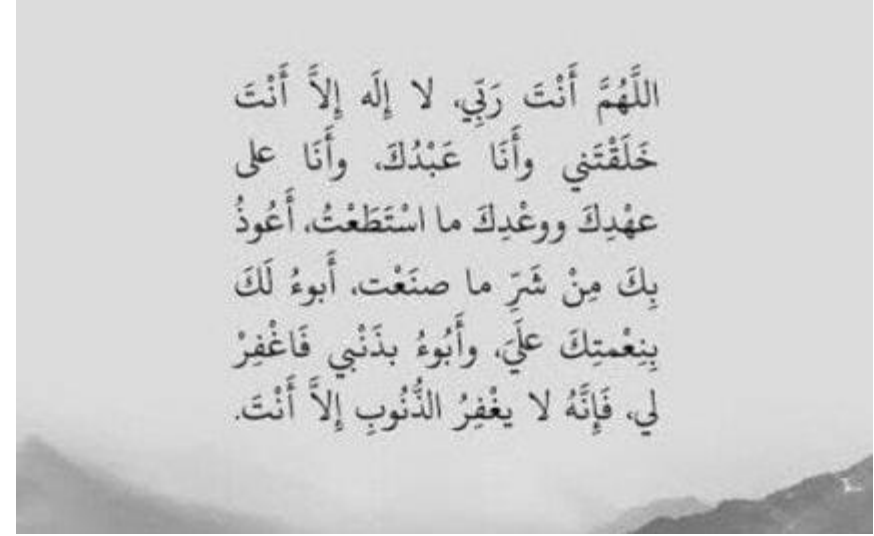 اللَّهُمَّ أَنْتَ رَبِّي، لا إِلَه إِلاَّ أَنْتَ
خَلَقْتَني وأَنَا عَبْدُكَ، وأَنَا على
عهْدِكَ ووعْدِكَ ما اسْتَطَعْتُ، أَعُوذُ
بِكَ مِنْ شَرِّ ما صنَعْت، أَبوءُ لَكَ
بِنِعْمتِكَ علَيَ، وأَبُوءُ بذَنْبي فَاغْفِرْ
لي، فَإِنَّهُ لا يغْفِرُ الذُّنُوبِ إِلاَّ أَنْتَ.